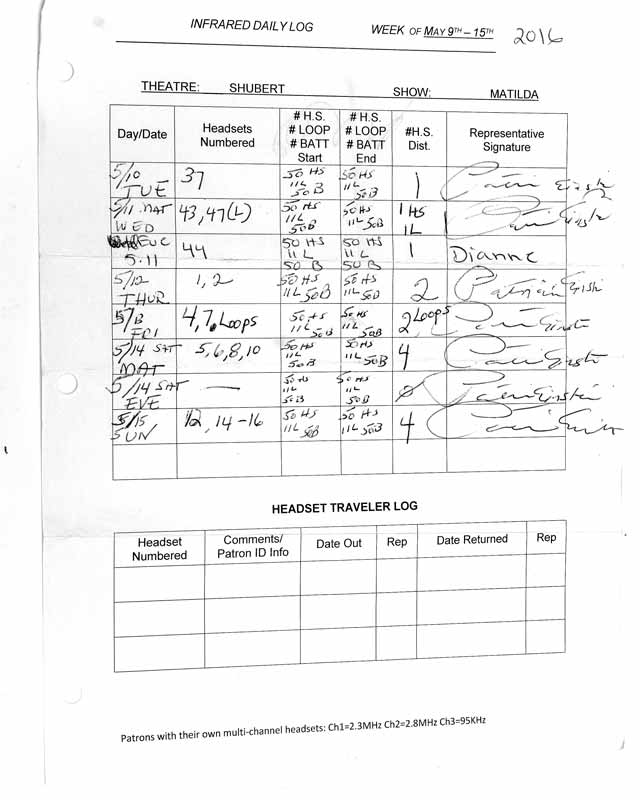 INFRARED DAILY LOG WEEK OF MAY 9TH – 15TH 2016
THEATRE: SHUBERT SHOW: MATILDA
Day/Date Headsets Numbered # H.S. # LOOP # BATT Start # H.S. # LOOP # BATT End #H.S. Dist. Representative Signature
5/10 TUE 37 50 HS 11L 50B 50 HS 11L 50B 1
5/11 MAT WED 43, 47(L) 50 HS 11L 50B 50 HS 11L 50B 1 HS 1L
5.11 44 50 HS 11 L 50 B 50 HS 11 L 50 B 1 Dianne
5/12 THUR 1, 2 50 HS 11L 50B 50 HS 11L 50B 2
5/13 FRI 4, 7, Loops 50 HS 11L 50B 50 HS 11L 50B 2 Loops
5/14 SAT MAT 5, 6, 8, 10 50 HS 11L 50B 50 HS 11L 50B 4
5/14 SAT EVE — 50 HS 11L 50B 50 HS 11L 50B 0
5/15 SUN 12, 14-16 50 HS 11L 50B 50 HS 11L 50B 4
HEADSET TRAVELER LOG
Headset Numbered Comments/ Patron ID Info Date Out Rep Date Returned Rep
Patrons with their own multi-channel headsets: Ch1=2.3MHz Ch2=2.8MHz Ch3=95KHz